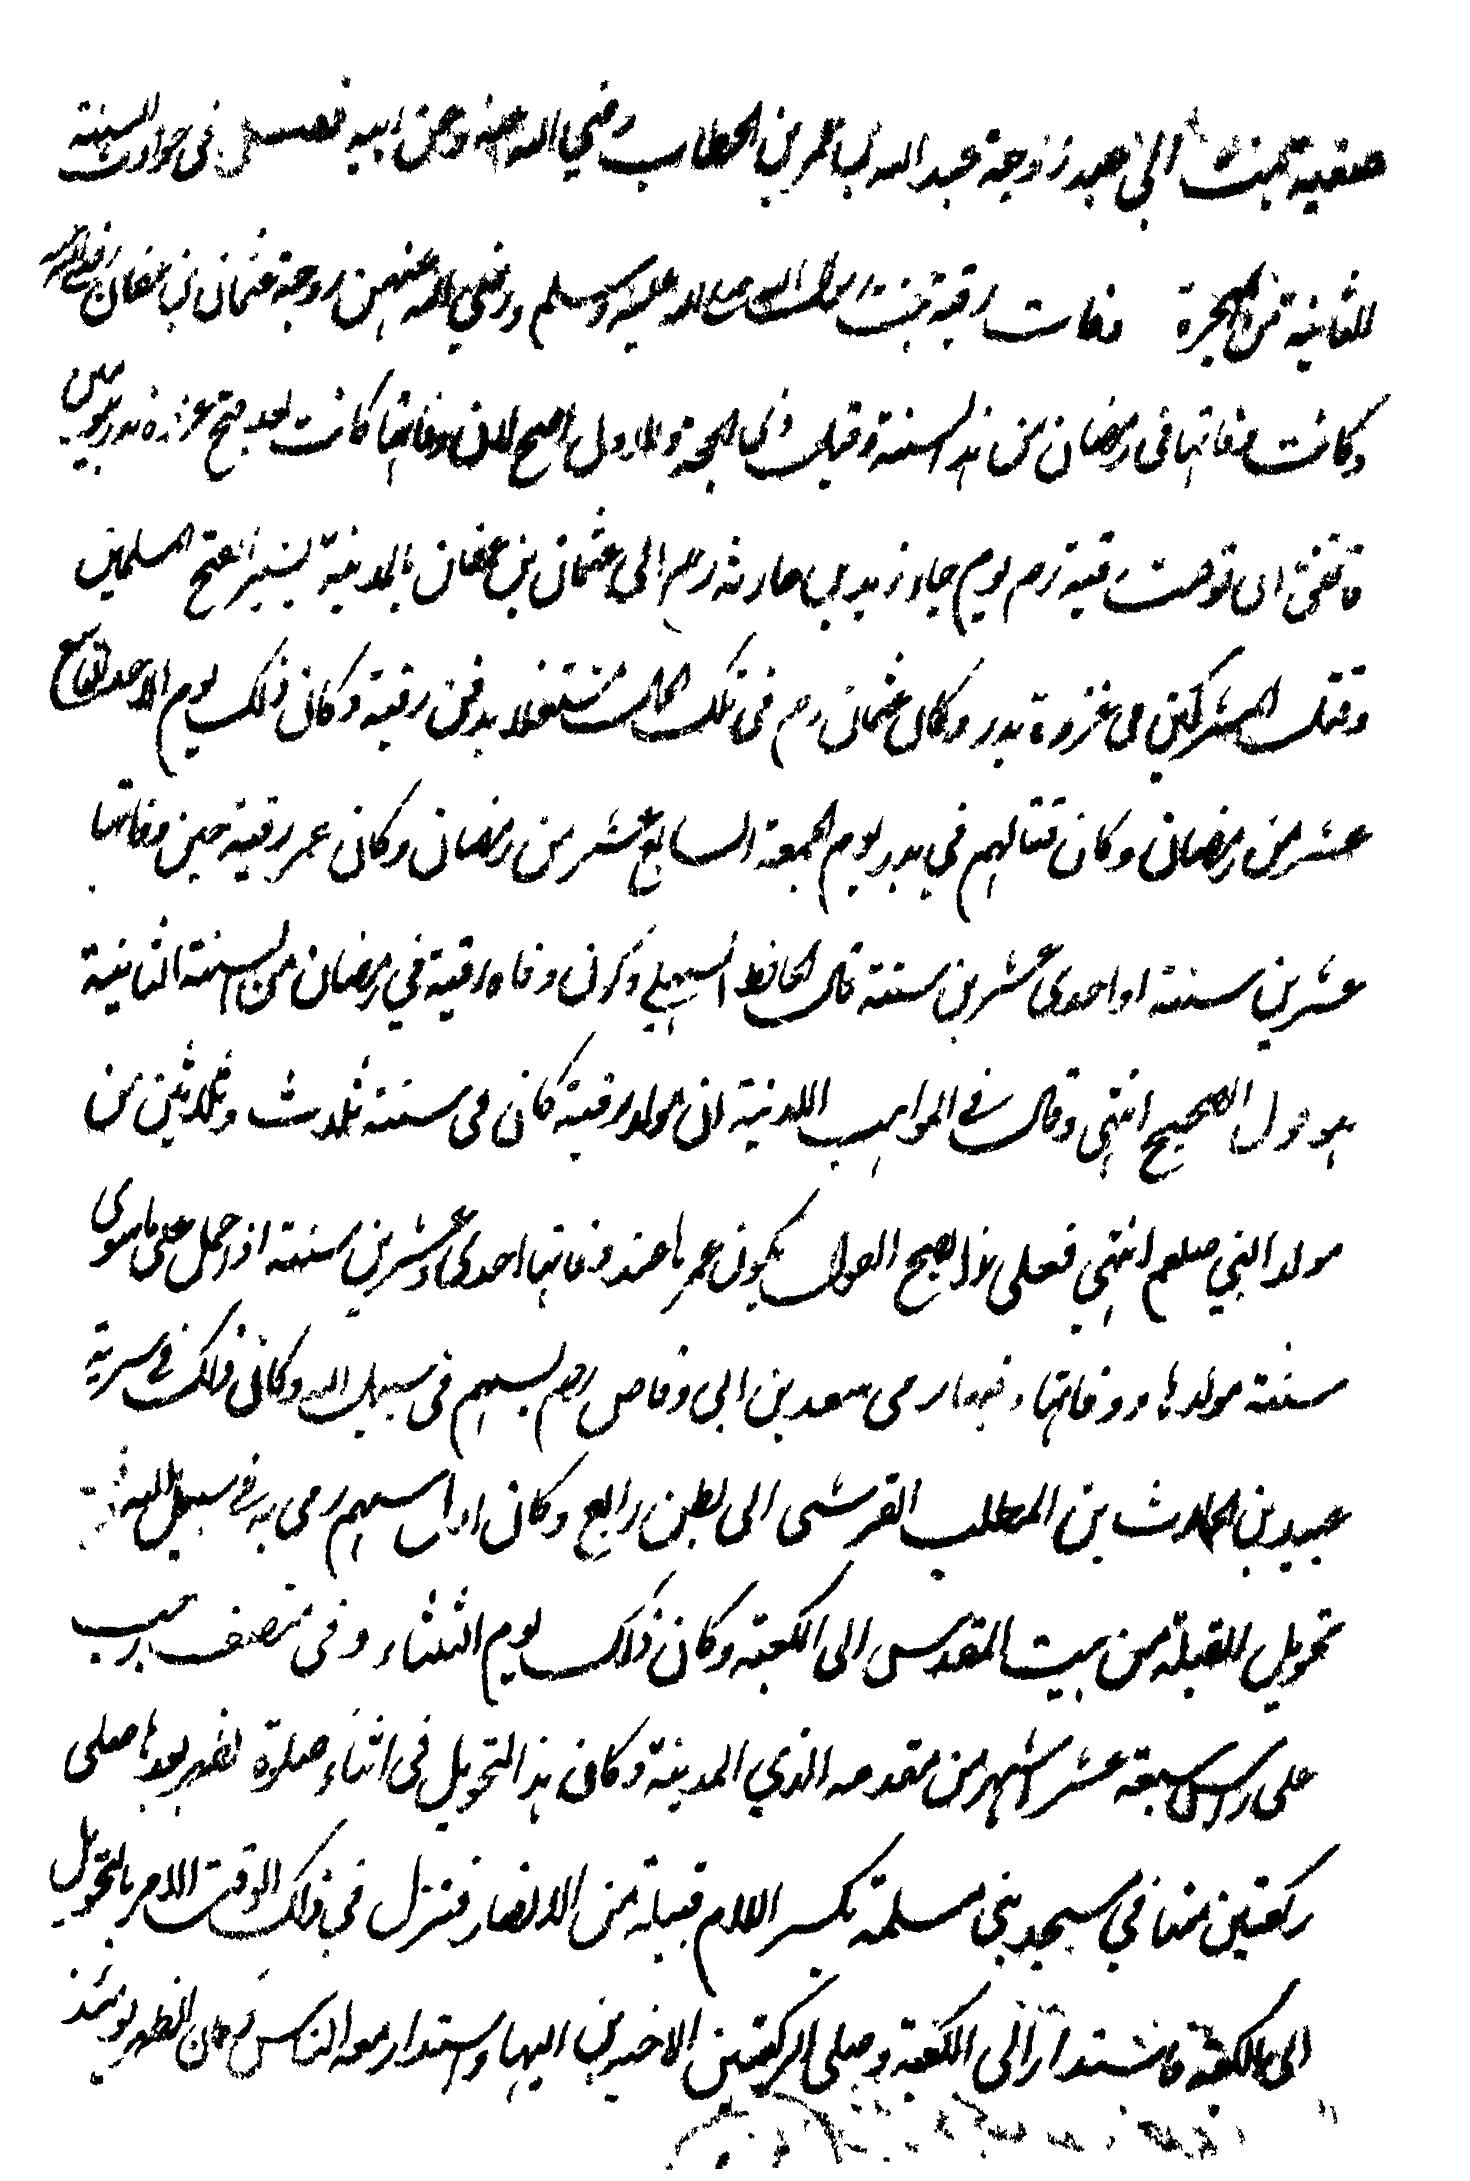 صفية بنت ابي عبيد زوجة عبد الله بن عمر بن الخطاب رضي الله عنه وعن ابيه فصل في حوادث السنة
الثانية من الهجرة وفات رقية بنت رسول الله صلى الله عليه وسلم ورضي الله عنهن زوجة عثمان بن عفان رضي الله عنه
وكانت وفاتها في رمضان من هذه السنة وقيل ذي الحجة والاول اصح لان وفاتها كانت بعد فتح غزوة بدر
فاتفق ان توفت رقية رضم يوم جاء زيد بن حارثة رضم الى عثمان بن عفان بالمدينة يبشر الفتح المسلمين
وقتل المشركين في غزوة بدر وكان عثمان رضم في تلك الحالت مشتغلا بدفن رقية وكان ذلك يوم الاحد التاسع
عشر من رمضان وكان قتالهم في بدر يوم الجمعة السابع عشر من رمضان وكان عمر رقية حين وفاتها
عشرين سنة او احدى عشرين سنة قال الحافظ السهيلي وكون وفاة رقية في رمضان من السنة الثانية
هو قول الصحيح انتهى وقال في المواهب اللدنية ان مولد رقية كان في سنة ثلاث وثلاثين من
مولد النبي صلعم انتهى فعلى هذا الصح القول يكون عمرها عند وفاتها احدى وعشرين سنة اذا حمل على ما سوى
سنة مولدها ووفاتها فيها رمى سعد بن ابي وقاص رضم بسهم في سبيل الله وكان ذلك في سرية
عبيد بن الحارث بن المطلب القرشى الى بطن رابع وكان اول سهم رمى به في سبيل الله
تحويل القبلة من بيت المقدس الى الكعبة وكان ذلك يوم الثلثاء وفي منتصف رجب
على راس سبعة عشر اشهر من مقدمه الذي المدينة وكان هذا التحويل في اثناء صلوة الظهر بعد ما صلى
ركعتين منها في مسجد بني سلمة بكسر اللام قبيلة من الانصار فنزل في ذلك الوقت الامر بالتحويل
الى الكعبة فاستدار الى الكعبة وصلى الركعتين الاخيرين اليها واستدار معه الناس فكان الظهر يومئذ